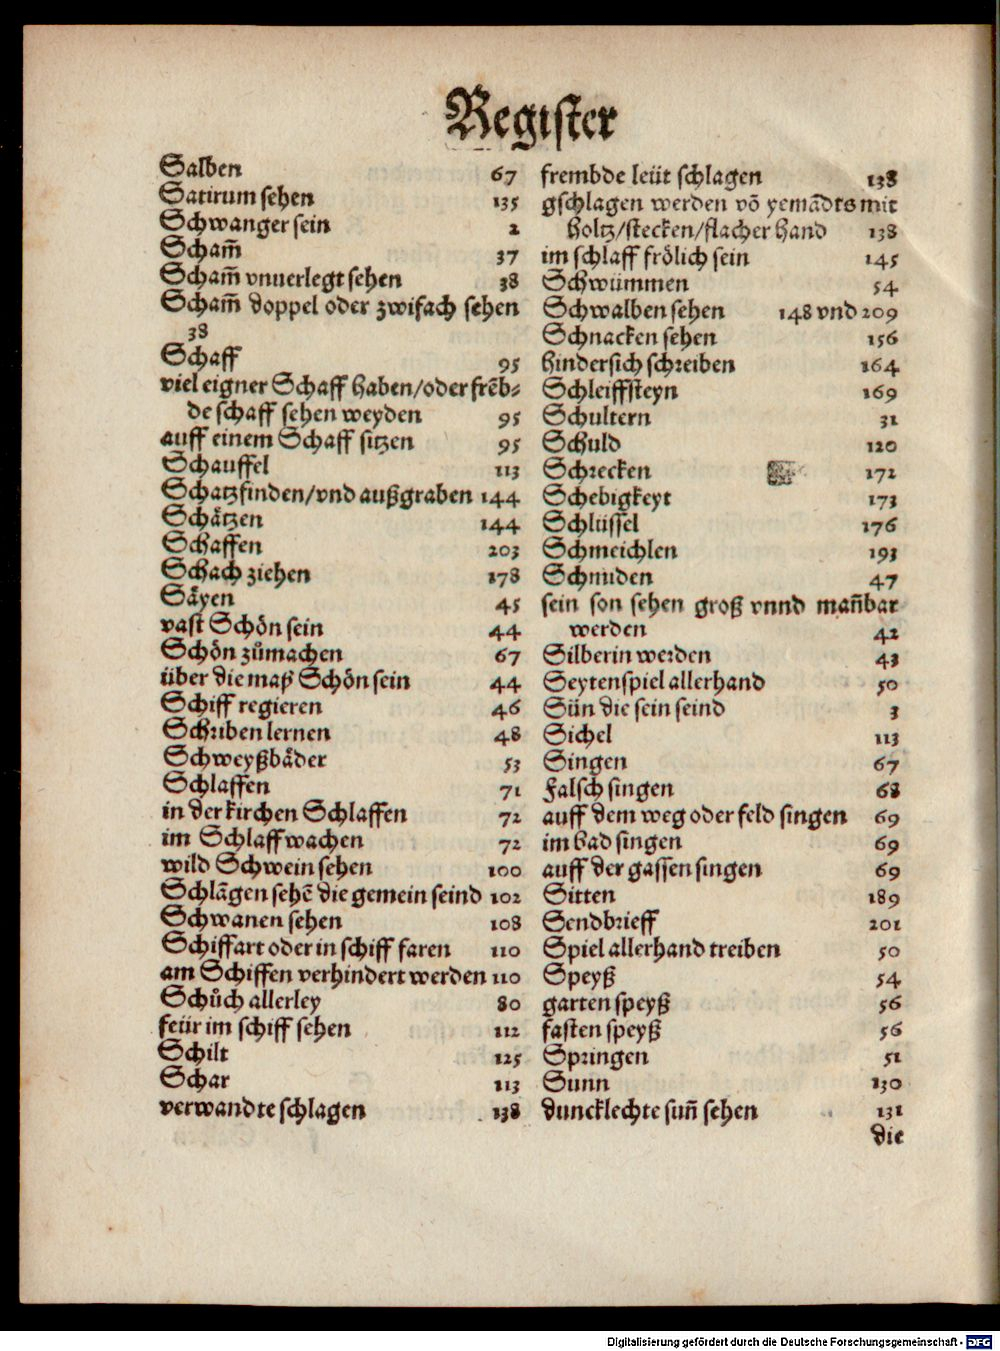 Register
Salben 67
Satirum sehen 135
Schwanger sein 2
Scham̃ 37
Scham̃ vnuerlegt sehen 38
Scham̃ doppel oder zwifach sehen
38
Schaff 95
viel eigner Schaff haben/oder frẽb⸗
de schaff sehen weyden 95
auff einem Schaff sitzen 95
Schauffel 113
Schatz finden/vnd außgraben 144
Schätzen 144
Schaffen 203
Schach ziehen 178
Säyen 45
vast Schön sein 44
Schön zů machen 67
über die maß Schön sein 44
Schiff regieren 46
Schriben lernen 48
Schweyßbäder 53
Schlaffen 71
in der kirchen Schlaffen 72
im Schlaff wachen 72
wild Schwein sehen 100
Schlãgen sehẽ die gemein seind 102
Schwanen sehen 108
Schiffart oder in schiff faren 110
am Schiffen verhindert werden 110
Schůch allerley 80
feür im schiff sehen 112
Schilt 125
Schar 113
verwandte schlagen 138
frembde leüt schlagen 138
gschlagen werden võ yemãdts mit
holtz/stecken/flacher hand 138
im schlaff frölich sein 145
Schwümmen 54
Schwalben sehen 148 vnd 209
Schnacken sehen 156
hindersich schreiben 164
Schleiffsteyn 169
Schultern 31
Schuld 120
Schrecken 172
Schebigkeyt 173
Schlüssel 176
Schmeichlen 193
Schmiden 47
sein son sehen groß vnnd man̄bar
werden 42
Silberin werden 43
Seytenspiel allerhand 50
Sün die sein seind 3
Sichel 113
Singen 67
Falsch singen 68
auff dem weg oder feld singen 69
im bad singen 69
auff der gassen singen 69
Sitten 189
Sendbrieff 201
Spiel allerhand treiben 50
Speyß 54
garten speyß 56
fasten speyß 56
Springen 51
Sunn 130
duncklechte sun̄ sehen 131
die
Digitalisierung gefördert durch die Deutsche Forschungsgemeinschaft - DFG